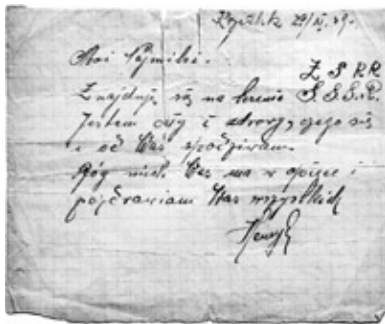 29/XI. 39.
Moi Najmilsi.
Z S R R
Znajduję się na terenie S.S.S.R.
Jestem cały i zdrowy, czego się
i od Was spodziewam.
Bóg niech Was ma w opiece i
pozdrawiam Was wszystkich
Henryk